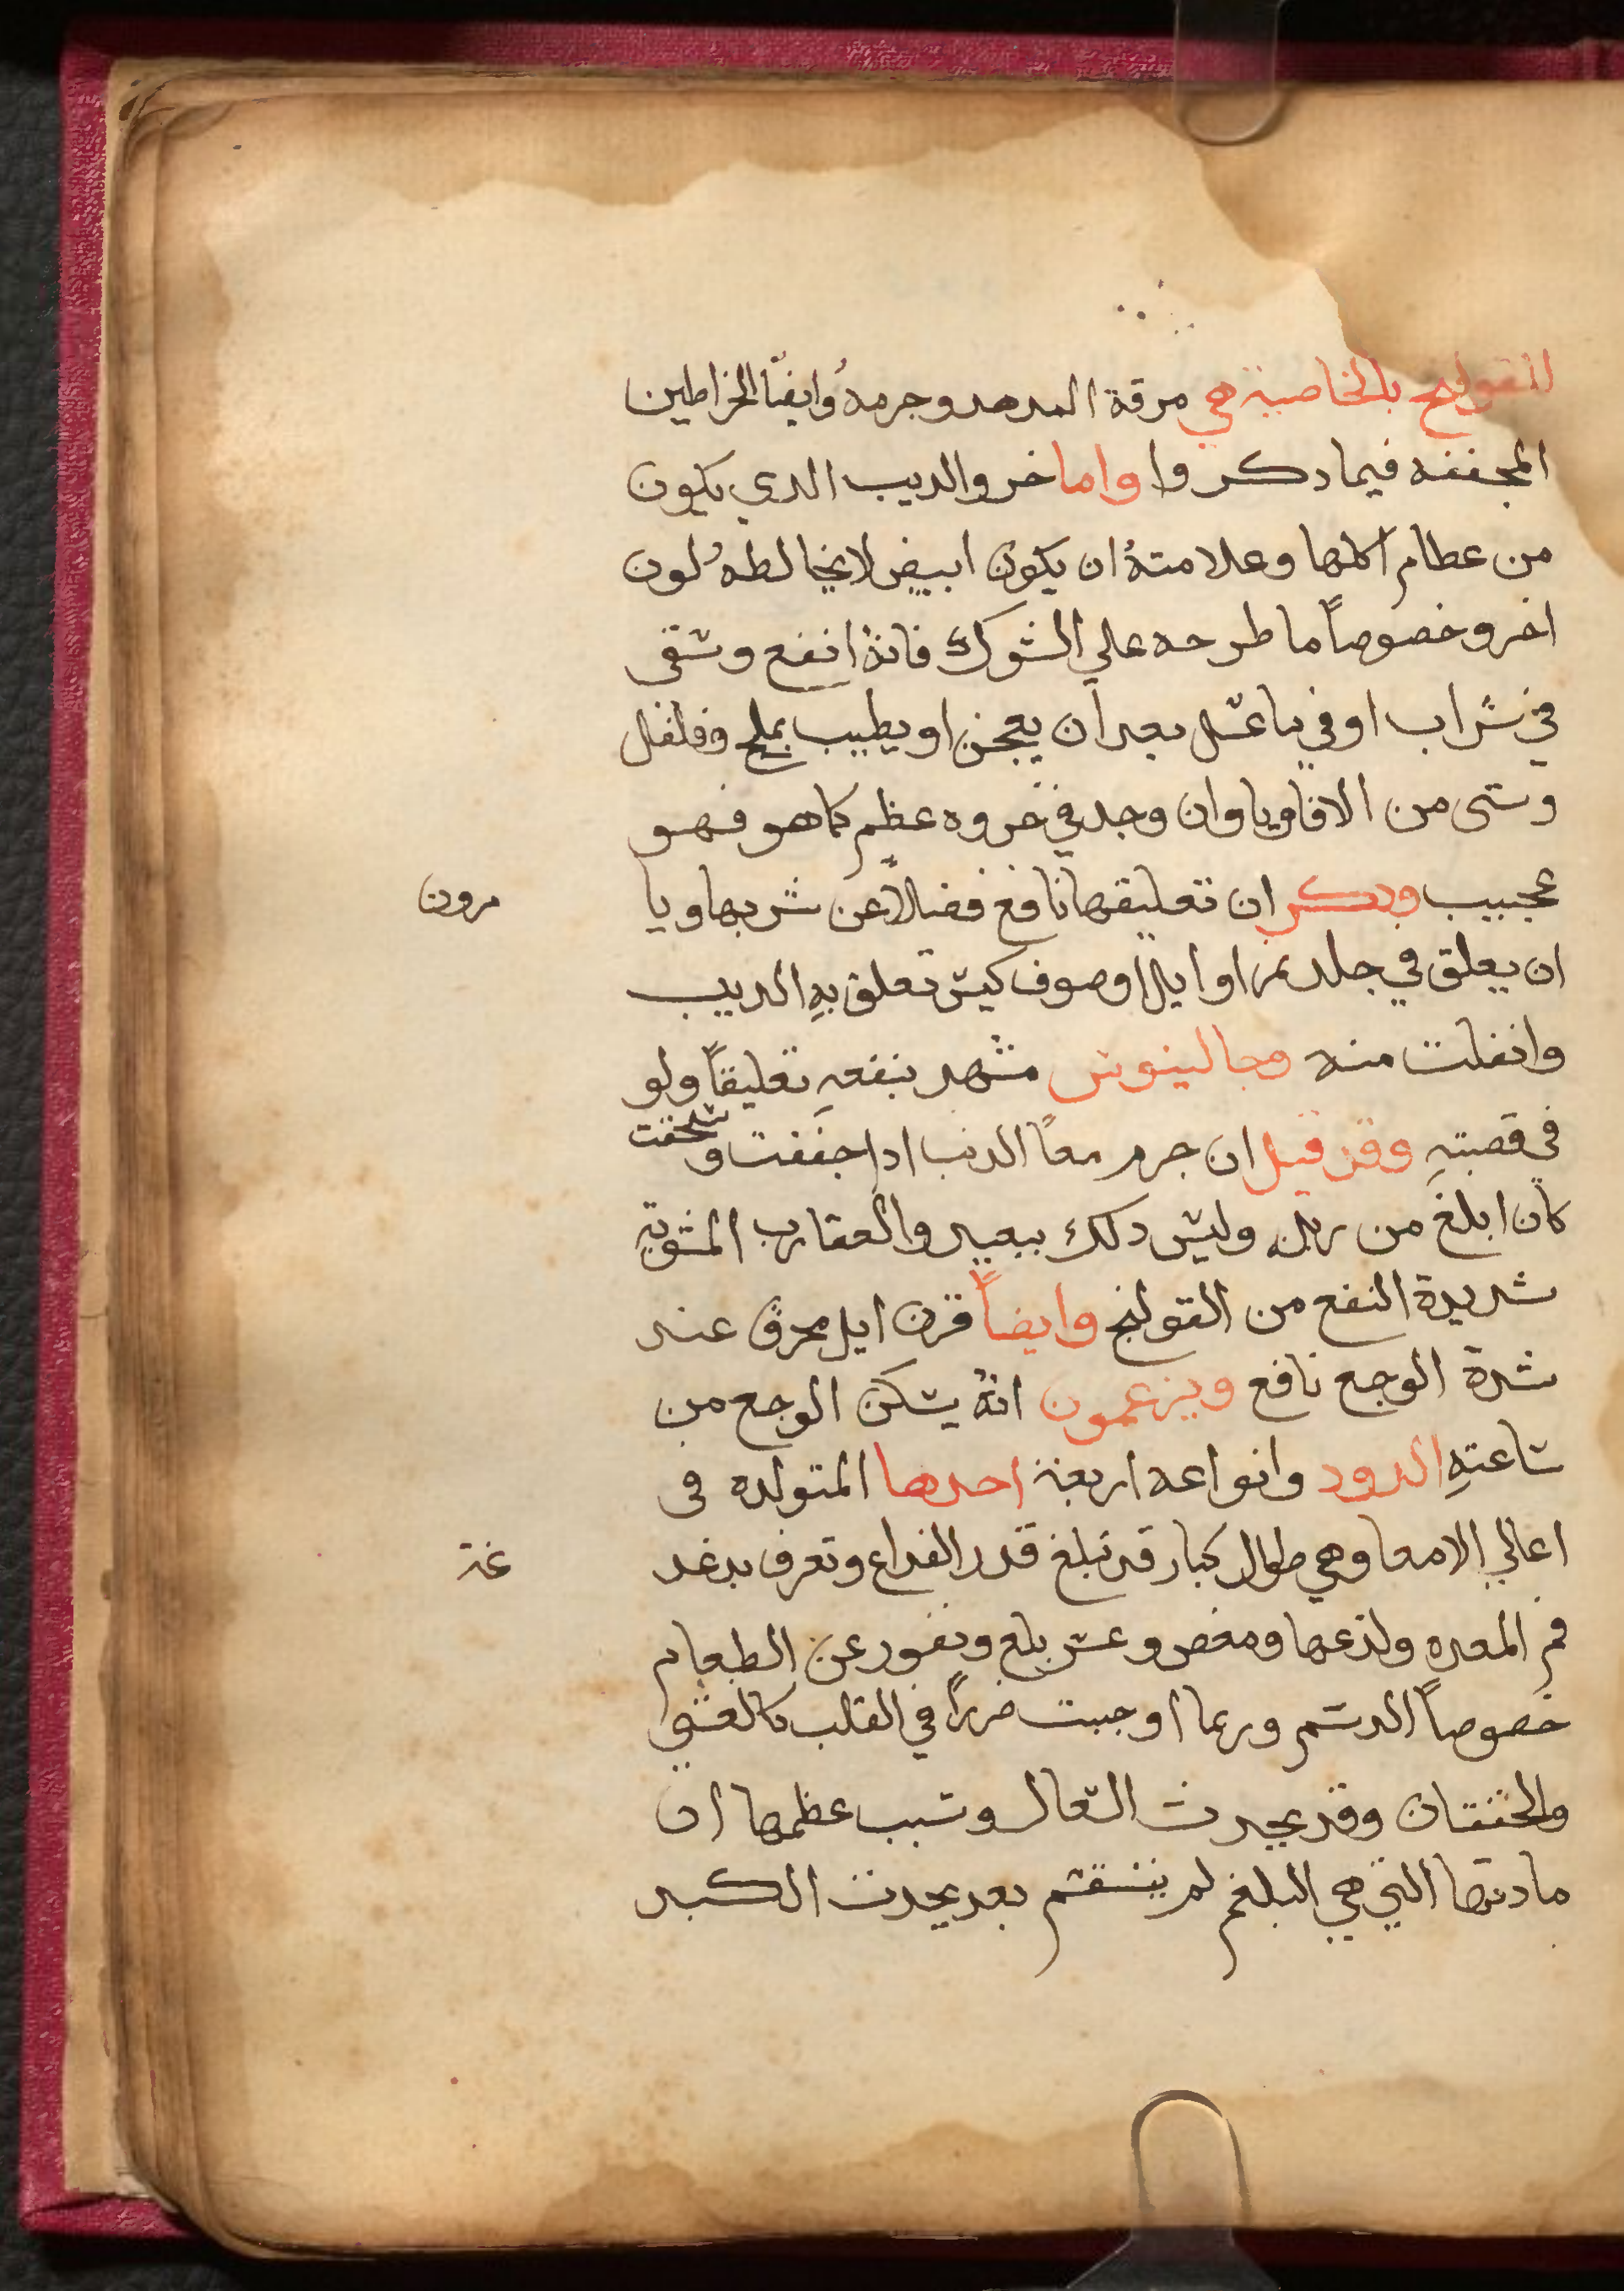 للقولنج بالخاصية هي مرقة الهدهد وجرمهُ وايضًا الخراطين
المجففه فيما دكروا واما خرو الديب الدي يكون
من عطام اكلها وعلامتهُ ان يكون ابيض لا يخالطهُ لون
اخر وخصوصاً ما طرحه علي الشوك فانهُ انفع وسقى
في شراب او في ما عسل بعد ان يعجن او يطيب بملح وفلفل
وشى من الافاويا وان وجد في خروه عظم كما هو فهو
عجيب ودكر ان تعليقها نافع فضلاً عن شربها ويا
مرون
ان يعلق في جلد نمر او ايل او صوف كبش تعلق بهِ الديب
وانفلت منه وجالينوس شهد بنفعهِ تعليقاً ولو
في قصبتهِ وقد قيل ان جرم معا الديب ادا جففت و سحقت
كان ابلغ من زبله وليس دلك ببعيد والعقارب المشويه
شديدة النفع من القولنج وايضاً قرن ايل محرق عند
شدة الوجع نافع ويزعمون انهُ يسكن الوجع من
ساعتهِ الدود وانواعه اربعة احدها المتولده فى
اعالي الامعا وهي طوال كبار قد تبلغ قدر الدراع وتعرف بدغد
غة
فم المعده ولذعها ومغص وعسر بلع ونفور عن الطعام
خصوصاً الدسم وربما اوجبت ضرراً في القلب كالغشي
والخفقان وقد يحدث السعال وسبب عظمها ان
مادتها التي هي البلغم لم ينقسم بعد يحدث الكبد